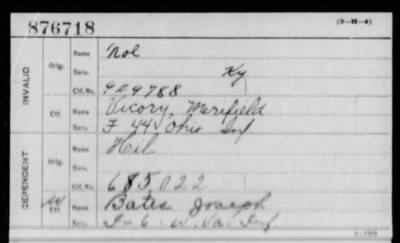 876718
(3-M-4)
INVALID
Orig.
Name
Nol
Serv.
Ky
Ctf. No.
909788
Ctf.
Name
Vicory, Merifield
Serv.
F 44 Ohio Inf
DEPENDENT
Orig.
Name
Heil
Serv.
Ctf. No.
685,022
Ctf.
Name
Bates Joseph
Serv.
I - 6. W. Va. Inf.